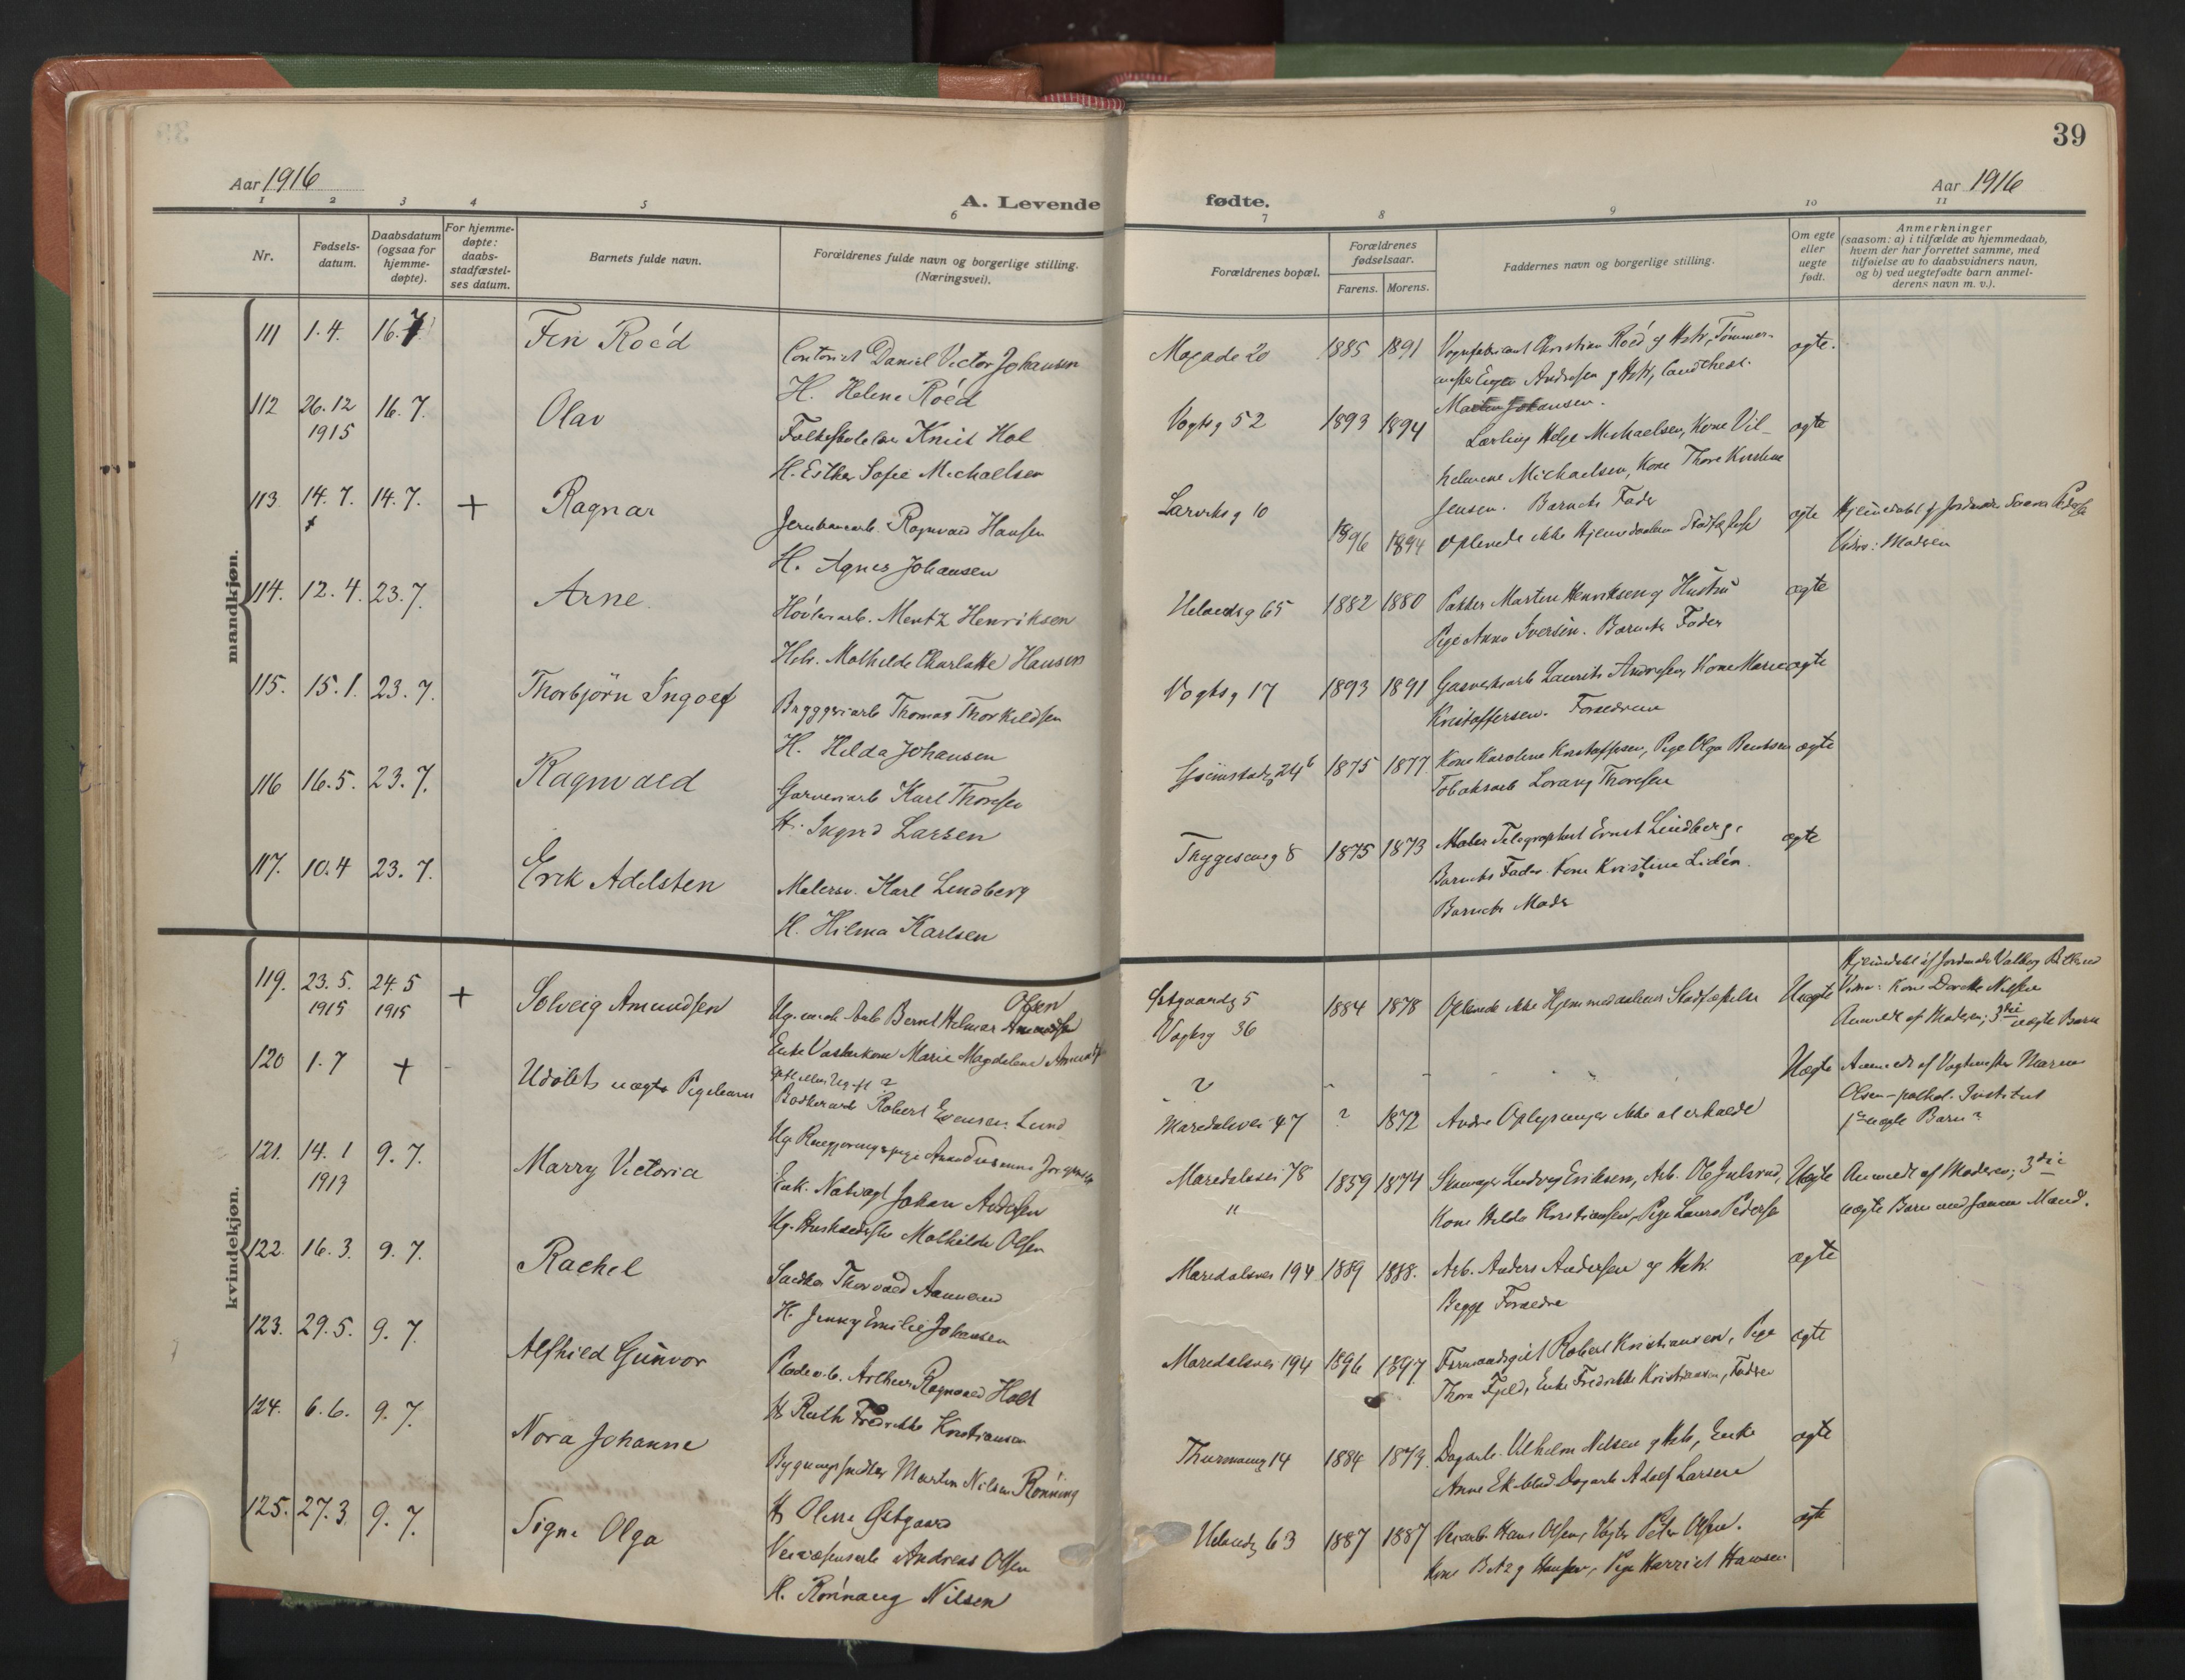 39
Aar 1916
A. Levende fødte.
Aar 1916
1 2 3 4 5 6 7 8 9 10 11
Nr.
Fødsels-
datum.
Daabsdatum
(ogsaa for
hjemme-
døpte).
For hjemme-
døpte:
daabs-
stadfæstel-
ses datum.
Barnets fulde navn.
Forældrenes fulde navn og borgerlige stilling.
(Næringsvei).
Forældrenes bopæl.
Forældrenes
fødselsaar.
Farens. Morens.
Faddernes navn og borgerlige stilling.
Om egte
eller
uegte
født.
Anmerkninger
(saasom: a) i tilfælde av hjemmedaab,
hvem der har forrettet samme, med
tilføielse av to daabsvidners navn,
og b) ved uegtefødte barn anmel-
derens navn m. v.).
mandkjøn.
111 1.4. 16.7. Fin Roéd
Contorist Daniel Victor Johansen
H. Helene Roéd
1885 1891 Vognfabrikant Christian Roéd og Hstr, Tømmer-
Andresen og Hstr,
Johansen.
ægte.
112 26.12 16.7. Olav
1915
Knut Hol
H. Esther Sofie Michaelsen
Vogtsg 52 1893 1894 Lærling Helge Michaelsen, Kone Vil-
helmine Michaelsen, Kone Thora Kirstine
Jensen. Barnets Fader
ægte
113 14.7. 14.7. + Ragnar
Jernbanearb. Ragnvald Hansen
H. Agnes Johansen
Larviksg 10 1896 1894 Oplevede ikke Hjemmedaabens Stadfæstelse
ægte
Hjemmedøbt af Jordmoder
Vidne: Madsen
114. 12.4. 23.7. Arne
Høvleriarb. Mentz Henriksen
Hstr. Mathilde Charlotte Hansen
Uelandsg 65 1882 1880 Pakker Martin Henriksen og Hustru
Pige Anna Iversen. Barnets Fader
ægte
115. 15.1. 23.7. Thorbjørn Ingolf
Bryggeriarb Thomas Thorkildsen
H. Hilda Johansen
Vogtsg 17 1893 1891 Gasverksarb Laurits Andresen, Kone Marie
Kristoffersen. Forældrene
ægte
116 16.5. 23.7. Ragnvald
Garveriarb Karl Thoresen
H. Ingrid Larsen
24b 1875 1877 Kone Karoline Kristoffersen, Pige Olga Berntsen
Tobaksarb Lorang Thoresen
ægte
117. 10.4 23.7. Erik Adelsten
Malersv. Karl Lindberg
H. Hilma Karlsen
Thygesensg 8 1875 1873 Telegraphist Ernst Lindberg,
Barnets Fader. Kone Kristine Lidén.
Barnets Moder
ægte
kvindekjøn.
119. 23.5. 24.5 + Solveig Amundsen
1915 1915
Olsen
Ug. Arb Bernt Hilmar Amundsen
Enke Vaskerkone Marie Magdalene
Østgaardsg 5
Vogtsg 36
1884 1878 Oplevede ikke Hjemmedaabens Stadfæstelse
Uægte
Hjemmedøbt af Jordmoder Valborg
Vidne: Kone Dorothe Nilsen
Anmeldt af Moderen; 3die uægte Barn
120 1.7 + Udøbt uægte Pigebarn
Gift eller Ug. ?
Bødkerarb Robert Evensen Lund
Ug. Rengjøringspige
?
Maridalsvei 47 ? 1872 Andre Oplysninger ikke at erholde
Uægte
Anmeldt af Vagtmester Maria
Olsen - pathol. Institut
1ste uægte Barn?
121. 14.1 9.7. Marry Victoria
1913
Enk. Natvagt Johan Andersen
Ug. Husholderske Mathilde Olsen
Maridalsvei 78
"
1859 1874 Ludvig Eriksen, Arb. Ole Julsrud,
Kone Hilda Kristiansen, Pige Laura Pedersen
Uægte
Anmeldt af Moderen; 3die
uægte Barn med samme Mand.
122. 16.3. 9.7. Rachel
Thorvald
H. Jenny Emilie Johansen
Maridalsvei 194 1889 1888. Arb. Anders Andersen og Hstr.
Begge Forældre
ægte
123. 29.5. 9.7. Alfhild Gunvor
Arthur Ragnvald Holt
H Ruth Fredrikke Kristiansen
Maridalsvei 194 1896 1897 Robert Kristiansen, Pige
Thora Fjeld, Enke Fredrikke Kristiansen, Fadren
ægte
124. 6.6. 9.7. Nora Johanne
Bygningssnedker Martin Nilsen Rönning
H Oline Østgaard
Thurmannsg 14 1884 1879. Dagarb. Vilhelm Nilsen og Hstr, Enke
Anne Ekblad Dagarb Adolf Larsen
ægte
125. 27.3. 9.7. Signe Olga
Veivæsensarb Andreas Olsen
H. Rönnaug Nilsen
Uelandsg 63 1887 1887 Veiarb Hans Olsen, Peter Olsen.
Kone Betzy Hansen, Pige Harriet Hansen
ægte